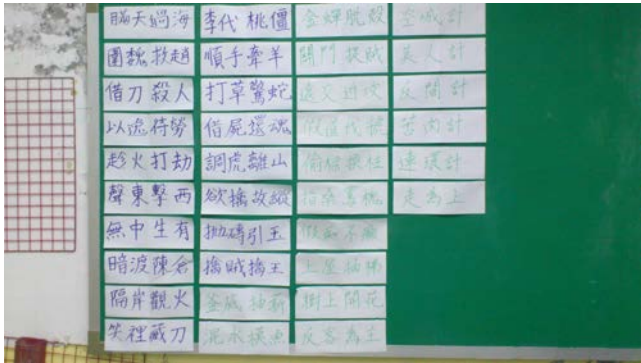 瞞天過海
圍魏救趙
借刀殺人
以逸待勞
趁火打劫
聲東擊西
無中生有
暗渡陳倉
隔岸觀火
笑裡藏刀
李代桃僵
順手牽羊
打草驚蛇
借屍還魂
調虎離山
欲擒故縱
拋磚引玉
擒賊擒王
釜底抽薪
混水摸魚
金蟬脫殼
關門捉賊
遠交近攻
假道伐虢
偷樑換柱
指桑罵槐
假痴不癲
上屋抽梯
樹上開花
反客為主
空城計
美人計
反間計
苦肉計
連環計
走為上